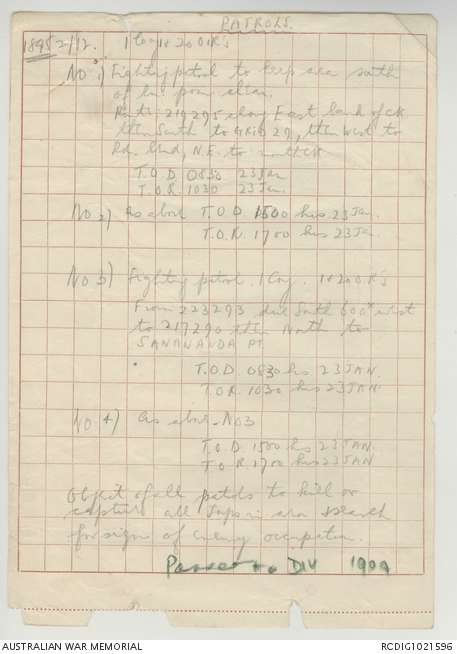 PATROLS.
1895 2/12. 1 Coy 1 + 20 ORS
No 1) Fighting patrol to keep area south
of bn. posn clear.
Route: 219295 along East bank of ck
then South to grid 29, then West to
Rd. bend, N.E. to
T.O.D 0830 23 Jan
T.O.R. 1030 23 Jan.
No 2) As above T.O.D 1500 hrs 23 Jan.
T.O.R. 1700 hrs 23 Jan.
No 3) Fighting patrol. 1 Coy. 1 + 20 ORS
From 223293 due South 600x west
to 217290 then North to
SANANANDA PT
T.O.D. 0830 hrs 23 JAN.
T.O.R. 1030 hrs 23 JAN.
No 4) As above No 3
T.O.D. 1500 hrs 23 JAN
T.O.R 1700 hrs 23 JAN
Object of all patrols to kill or
capture all Japs in area & search
for sign of enemy occupation.
Passed to DIV 1909
AUSTRALIAN WAR MEMORIAL RCDIG1021596